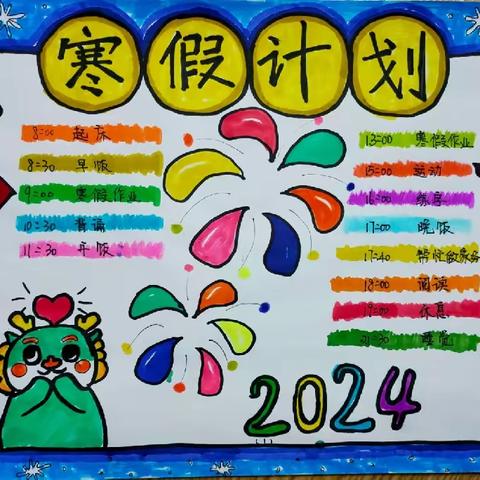 寒假计划
8:00 起床
8:30 早饭
9:00 寒假作业
10:30 背诵
11:30 午饭
13:00 寒假作业
15:00 运动
16:00 练字
17:00 晚饭
17:40 帮忙做家务
18:00 阅读
19:00 休息
21:30 睡觉
2024